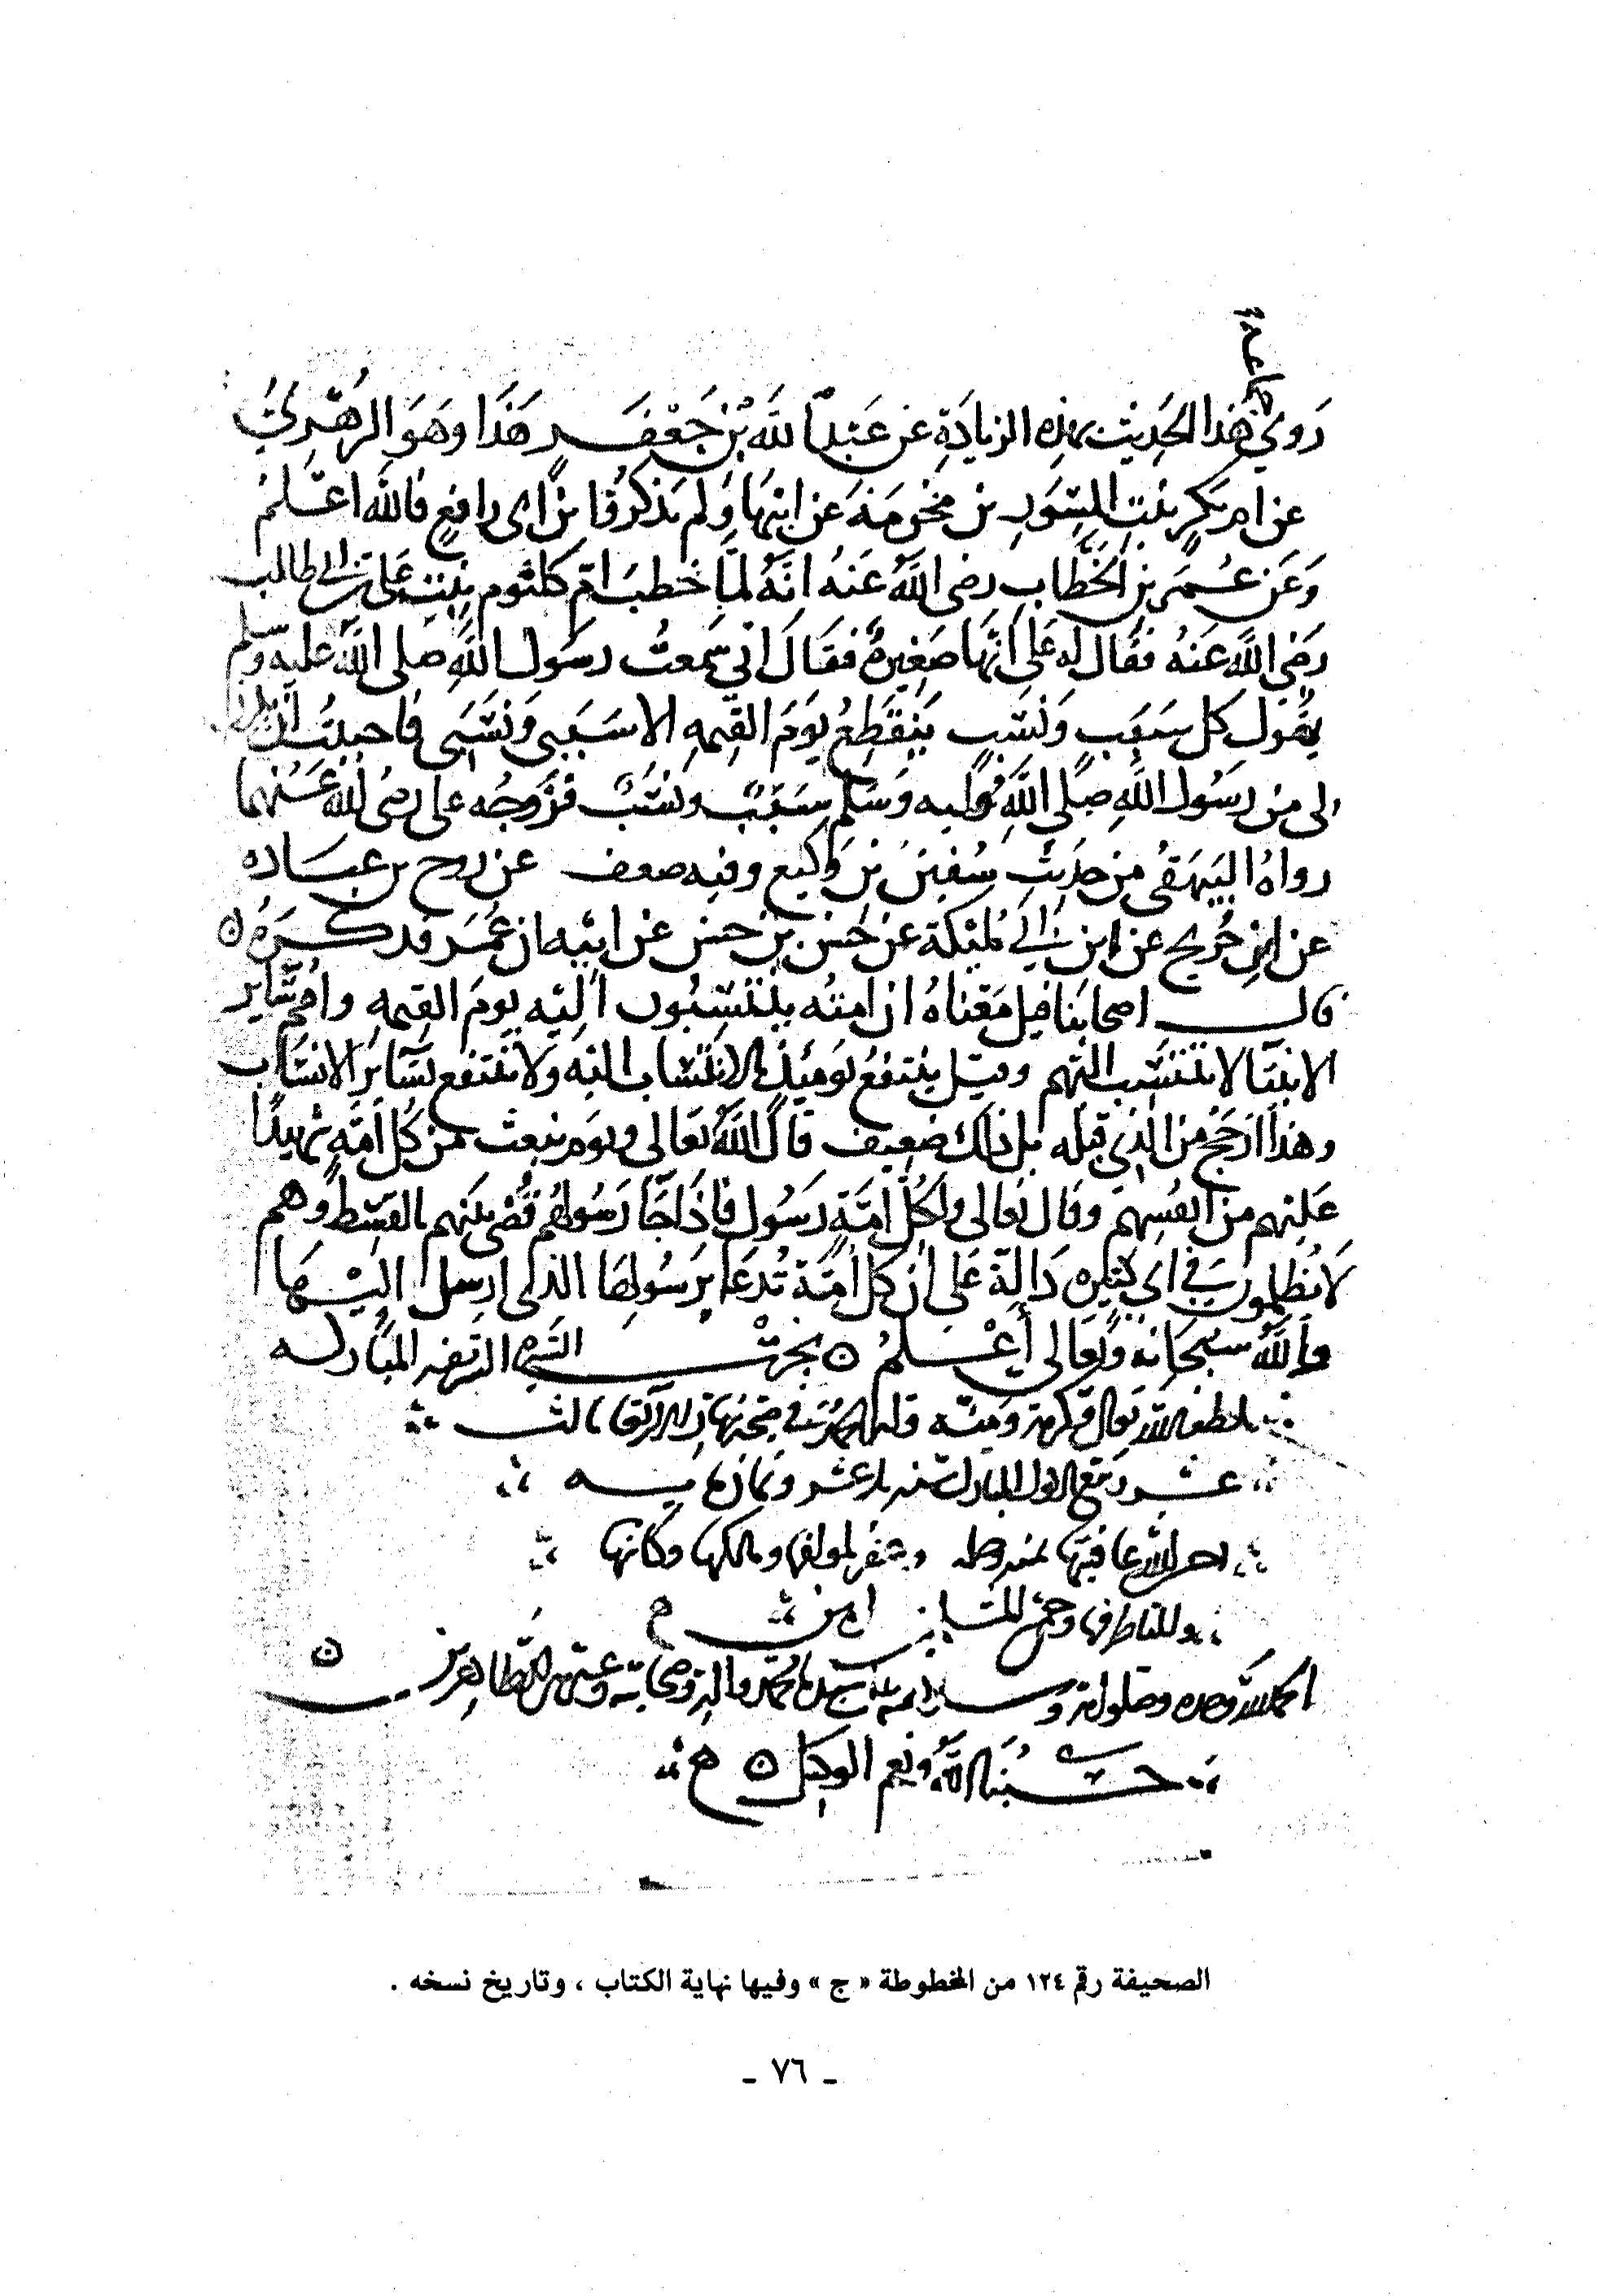 جماعة
روى هذا الحديث بهذه الزيادة عن عبد الله بن جعفر هذا وهو الزهري
عن ام بكر بنت المسور بن مخرمة عن ابيها ولم يذكر ابن ابي رافع فالله اعلم
وعن عمر بن الخطاب رضى الله عنه انه لما خطب ام كلثوم بنت على بن ابي طالب
رضى الله عنه فقال له على انها صغيرة فقال انى سمعت رسول الله صلى الله عليه وسلم
يقول كل سبب ونسب ينقطع يوم القيمه الا سببى ونسبى فاحببت ان يكون
لى من رسول الله صلى الله عليه وسلم سبب ونسب فزوجه على رضى الله عنهما
رواه البيهقى من حديث سفين بن وكيع وفيه ضعف عن روح بن عباده
عن ابن جريج عن ابن ابي مليكة عن حسن بن حسن عن ابيه ان عمر فذكره
قال اصحابنا قيل معناه ان امته ينتسبون اليه يوم القيمه وامم ساير
الانبيا لا تنتسب اليهم وقيل ينتفع يومئذ بالانتساب اليه ولا ينتفع بسائر الانساب
وهذا ارجح من الذي قبله بل ذلك ضعيف قال الله تعالى ويوم نبعث من كل امة شهيدا
عليهم من انفسهم وقال تعالى ولكل امة رسول فاذا جا رسولهم قضى بينهم بالقسط وهم
لا يظلمون في اى كثيره دالة على ان كل امة تدعا برسولها الذى ارسل اليها
والله سبحانه وتعالى أعلم نجزت السيرة الشريفه المباركه
بلطف الله تعالى وكرمه ومنه في يوم الاربعا ثالث
عشر ربيع الاول المبارك سنه وثمان مايه
احسن الله عاقبتها بمنه وغفر لمولفها ومالكها وكاتبها
وللناظر فيها وجميع المسلمين امين
الحمد لله وحده وصلواته وسلامه على سيدنا محمد واله وصحابته وعترته الطاهرين
حسبنا الله ونعم الوكيل
الصحيفة رقم ١٢٤ من المخطوطة « ج » وفيها نهاية الكتاب ، وتاريخ نسخه .
ـ ٧٦ ـ